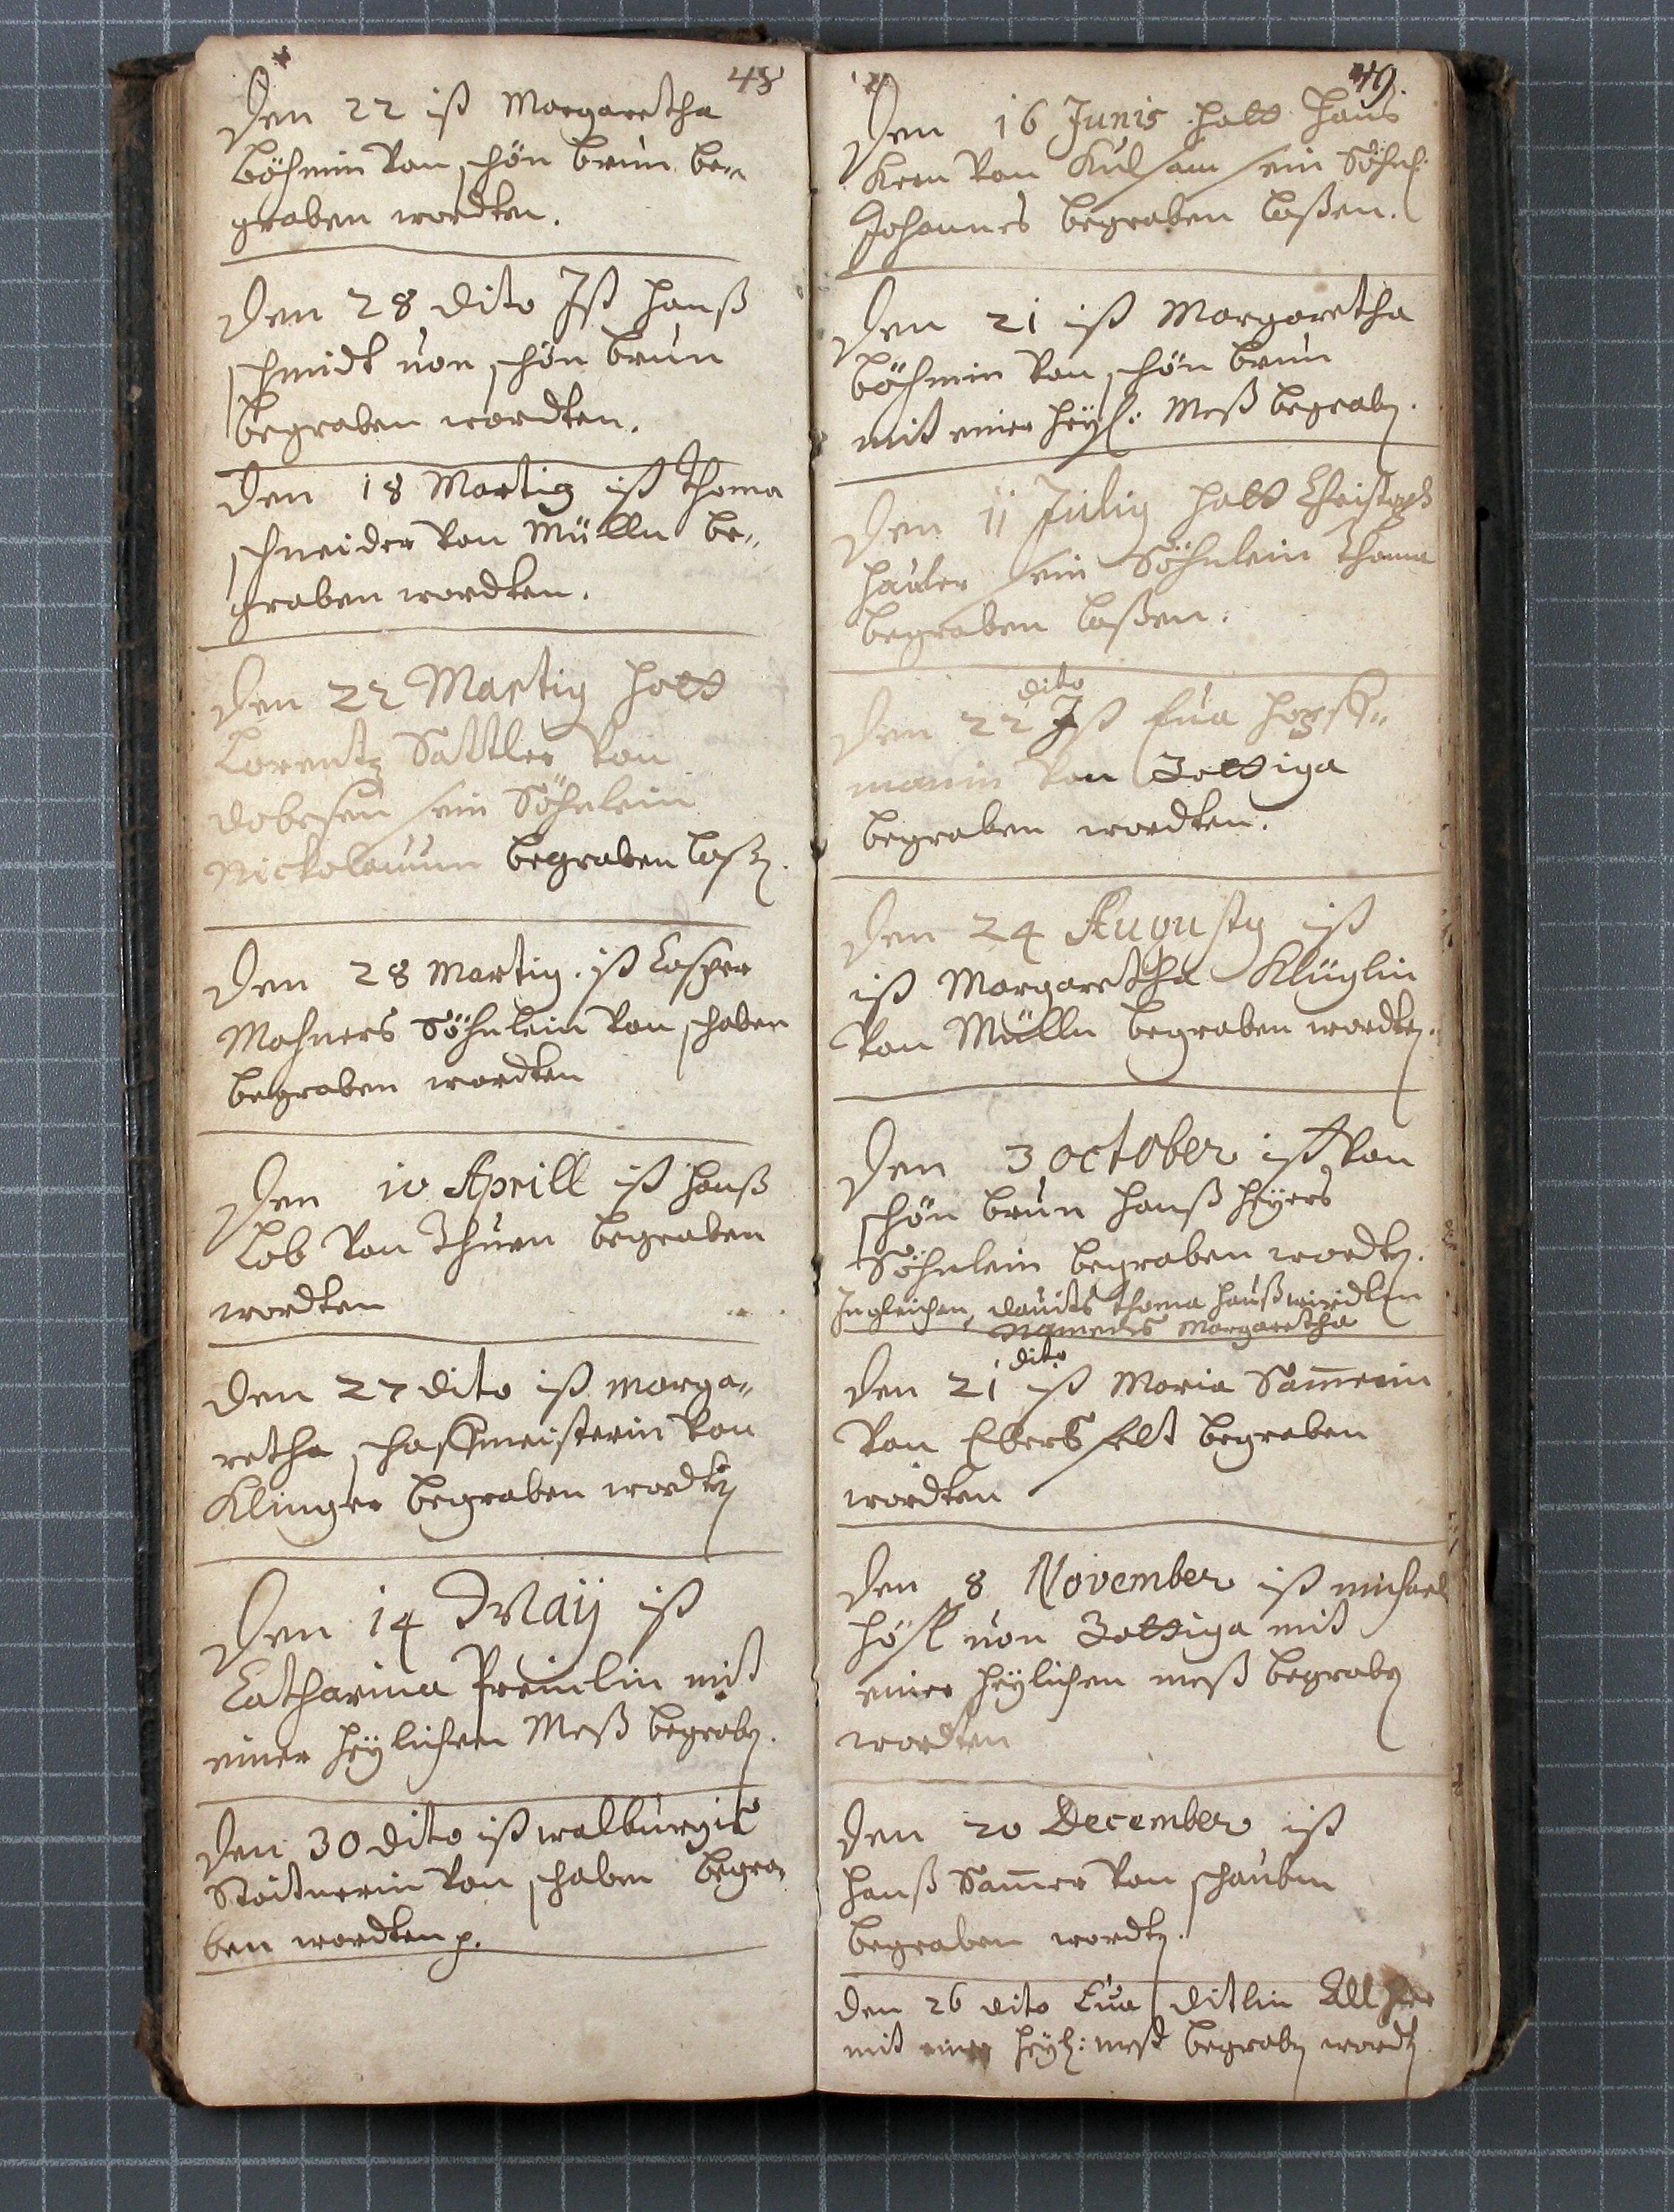 48
Den 22 ist Margaretha
Böhmin von schön brun be„
graben wordten.
Den 28 dito Ist Hanß
schmidt von schön brun
begraben wordten.
Den 18 Martiy ist Thoma
schneider von Mülln be„
graben wordten.
Den 22 Martiy hatt
Lorentz Sattler von
sein Söhnlein
Nickolauum begraben laß.
Den 28 Martiy. ist Casper
Mahners Söhnlein von schaben
begraben wordten
Den 10 Aprill ist Hanß
Lob von Thurn begraben
wordten
Den 27 dito ist Marga„
retha schaffmeisterin von
Klinger begraben wordt
Den 14 Maij ist
Catharina mit
einer heylichen Meß begrab.
Den 30 dito ist walburgis
von schaben begra„
ben wordten p.
49.
Den 16 Junis hatt Hans
Kern von Kulsam sein Söhnl:
Johannes begraben laßen.
Den 21 ist Margaretha
Böhmin von schön brun
mit einer heyl: Meß begrab.
Den 11 Juliy hatt Christoph
Hauler sein Söhnlein Thoma
begraben laßen.
dito
Den 22 Ist Eua
von Zottiga
begraben wordten.
Den 24 Augusty ist
ist Margaretha Klüglin
von Mülln begraben wordt.
Den 3 October ist von
schön brun Hanß Heyers
Söhnlein begraben wordt.
In gleichen, Thoma
Namens Margaretha
dito
Den 21 ist Maria Sam̄erin
von Ebersfelt begraben
wordten
Den 8 November ist michael
Hösl von Zottiga mit
einer heylichen meß begrab
wordten
Den 20 December ist
Hanß Sam̄er von schauben
begraben wordt.
Den 26 dito Eua ditlin All hier
mit einer heyl: meß begrab wordt